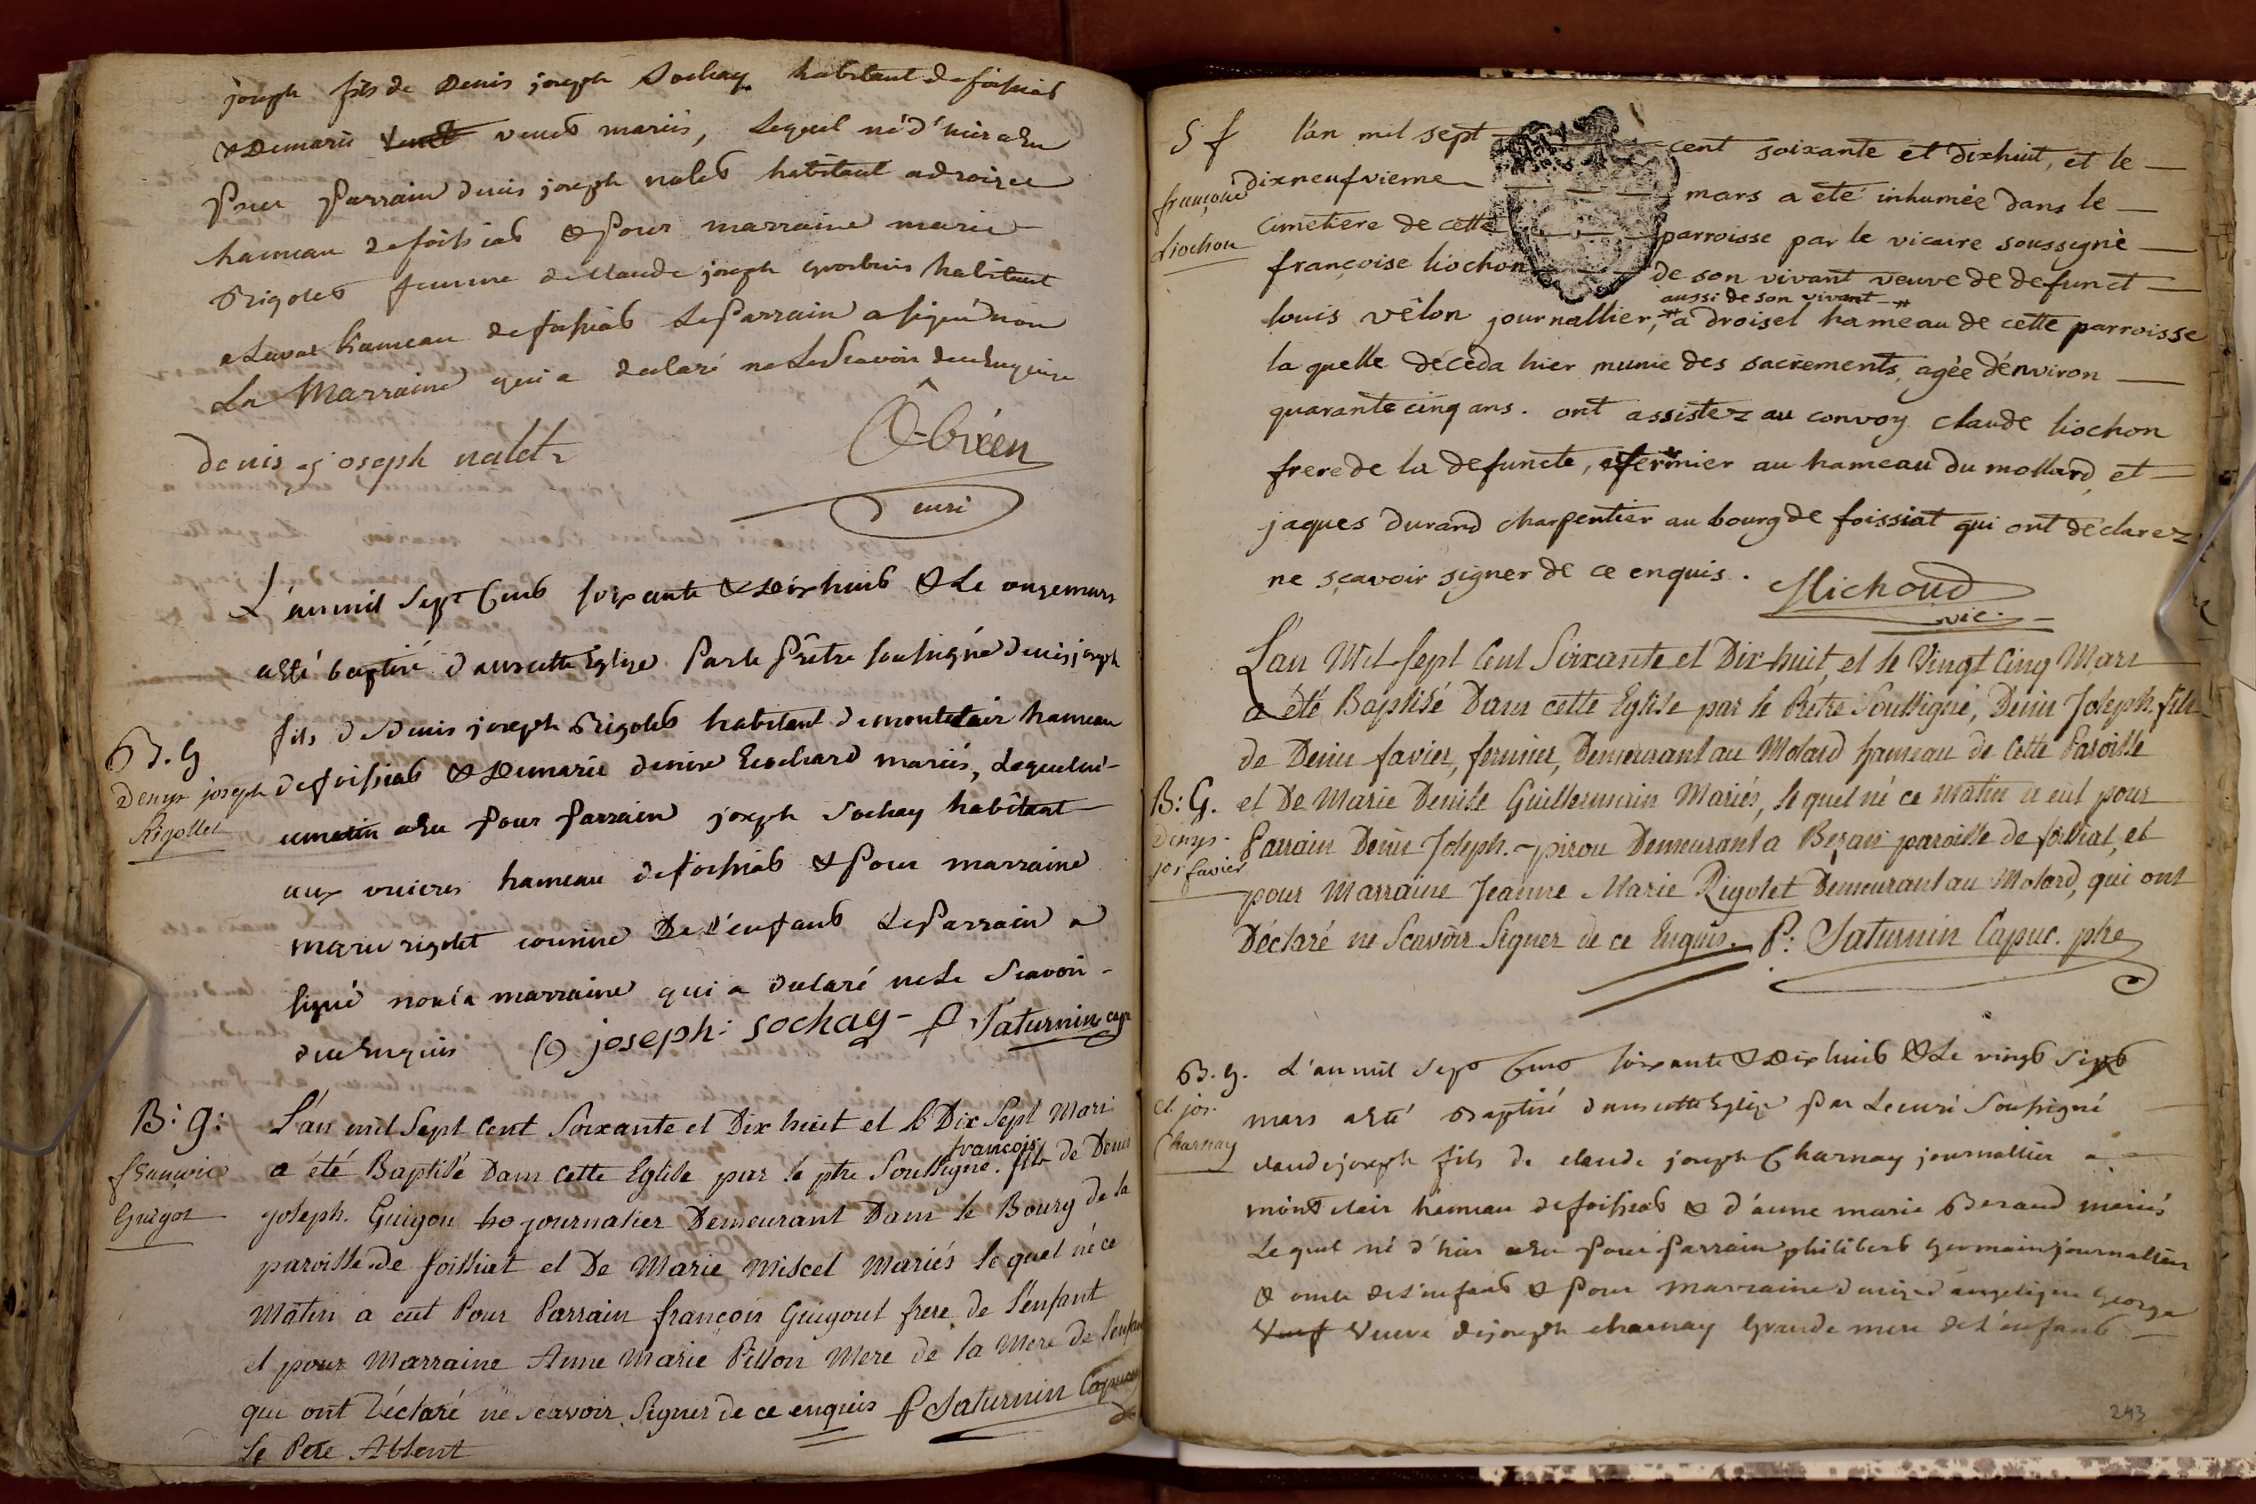 joseph fils de Denis joseph Sochay habitant de foissiat
& De marie venet mariés, Lequel né d'hier a Eu
Pour Parrain denis joseph nalet habitant a droizel
hameau de foissiat & Pour marraine marie
Rigolet femme de Claude joseph habitant
a Laval hameau de foissiat Le Parrain a signé non
La Marraine qui a declaré ne Le Scavoir de ce Enquise
denis joseph nalet
O-brien
curé
L'an mil Sept Cent soixante & Dix huit & Le onze mars
a Eté baptisé dans cette Eglise Par le Prêtre soussigné denis joseph
fils de Denis joseph Rigolet habitant de montclair hameau
B. G
Denys joseph
Rigollet
de foissiat & De marie denise mariés, Lequel né
ce matin a Eu Pour Parrain joseph Sochay habitant
aux hameau de foissiat & Pour marraine
marie rigolet cousine De L'enfant Le Parrain a
signé non la marraine qui a declaré ne Le Scavoir
de ce Enquis joseph: sochay - P Saturnin cap
B: G:
françois
Guigot
L'an mil Sept Cent Soixante et Dix huit et le Dix Sept Mars
a été Baptisé Dans cette Eglise par le ptre Soussigné. françois fils de Denis
joseph. Guigou journalier Demeurant Dans le Bourg de la
paroisse de foissiat et De Marie Miscel Mariés le quel né ce
Matin a eut Pour Parrain françois Guigout frere de l'enfant
et pour Marraine Anne Marie Pillon Mere de la Mere de l'enfant
qui ont Déclaré ne scavoir Signer de ce enquis P Saturnin Capuc
Le Pere Absent
S f
françoise
Liochon
l'an mil sept cent soixante et dixhuit, et le
dixneufvieme mars a eté inhumée dans le
cimetiere de cette parroisse par le vicaire soussigné
françoise liochon de son vivant veuve de defunct
aussi de son vivant #
louis vêlon journallier, # a droisel hameau de cette parroisse
la quelle déceda hier munie des sacrements, agée d'énviron
quarante cinq ans. ont assistez au convoy claude liochon
frere de la defuncte, fermier au hameau du mollard, et
jaques durand charpentier au bourg de foissiat qui ont déclarez
ne sçavoir signer de ce enquis. Michoud
vic.
L'an Mil Sept Cent Soixante et Dix huit, et le Vingt Cinq Mars
a été Baptisé Dans cette Eglise par le Prêtre Soussigné, Denis Joseph fils
de Denis favier, fermier, Demeurant au Molard hameau de Cette Paroisse
B: G.
denys-
jos favier
et De Marie Denise Guillermain Mariés, le quel né ce matin a eut pour
Parrain Denis Joseph. pirou Demeurant a Bezan paroisse de foissiat, et
pour Marraine Jeanne Marie Rigolet Demeurant au Molard, qui ont
Déclaré ne Scavoir Signer de ce Enquis. P: Saturnin Capuc. ptre
B. G.
Cl. jos.
Charnay
L'an mil Sept Cent soixante & Dix huit & Le vingt Sixt
mars a Eté Baptisé dans cette Eglise Par Le curé Soussigné
claude joseph fils de claude joseph Charnay journallier a
montclair hameau de foissiat & d'anne marie Beraud mariés
Lequel né d'hier a Eu Pour Parrain philibert germain journallier
& oncle de L'enfant & Pour marraine denise angelique George
Veuf Veuve de joseph charnay Grande mere de L'enfant
243